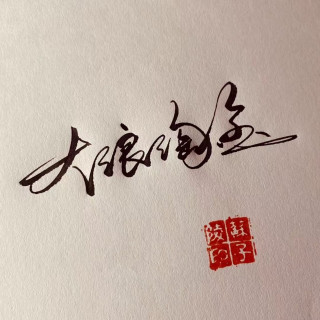 大浪淘金
蘇子陵印